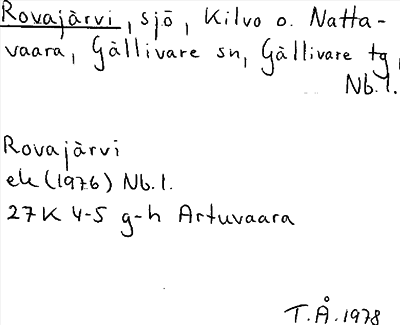 Rovajärvi, sjö, Kilvo o. Natta-
vaara, Gällivare sn, Gällivare tg,
Nb.l.
Rovajärvi
ek (1976) Nb.l.
27K 4-5 g-h Artuvaara
T.Å. 1978